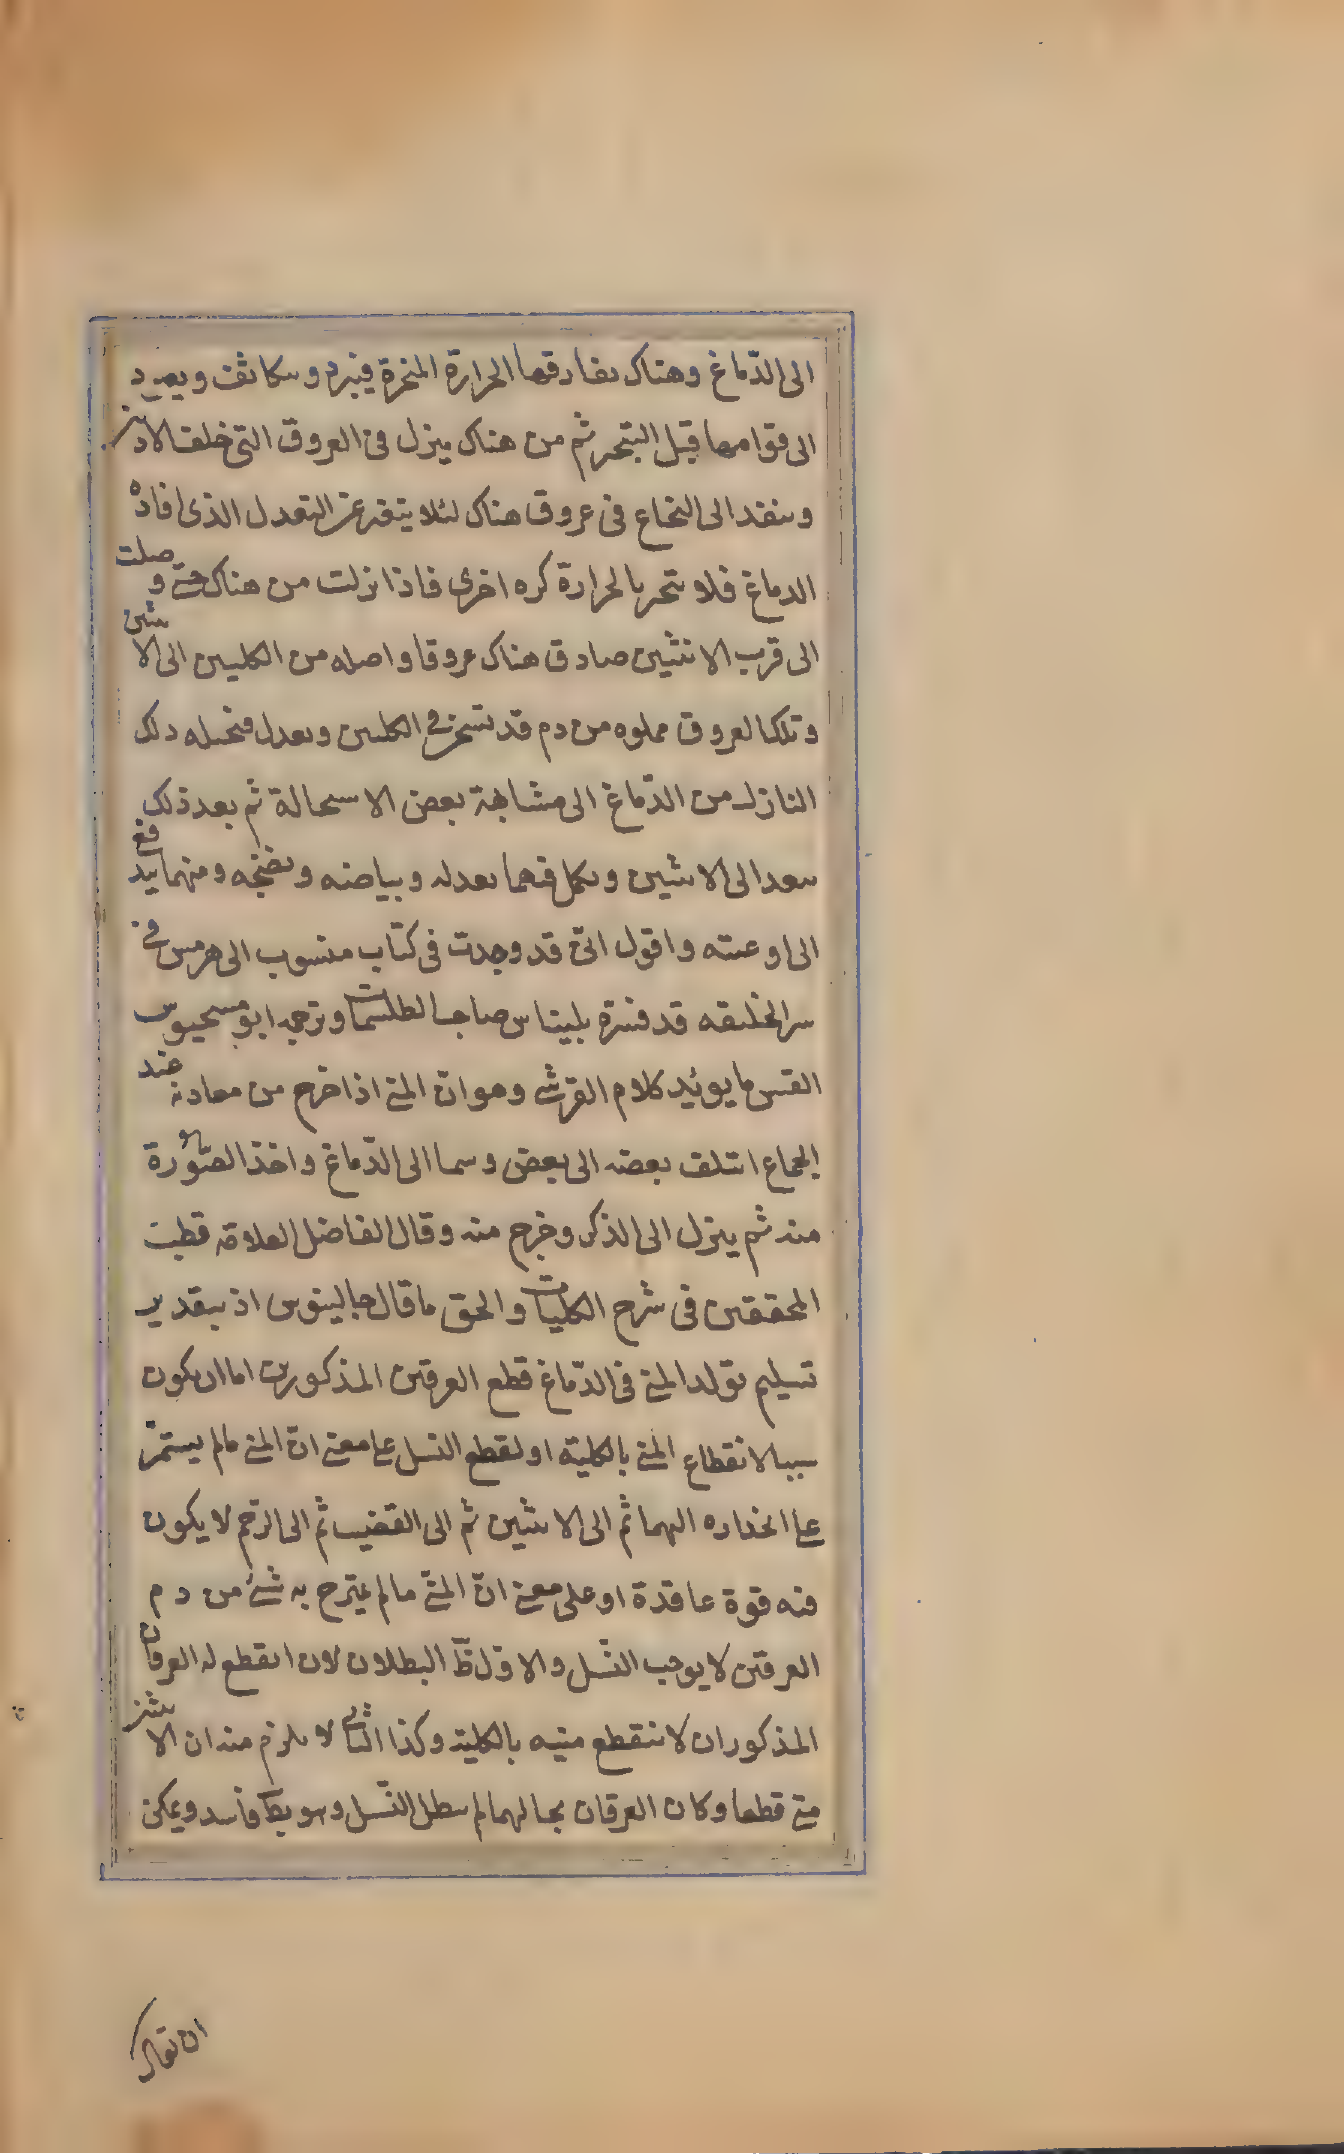 الى الدّماغ وهناك يفارقها الحرارة المبخرة فيبرد وسكاثف ويصير د
الى قوامها قبل التبخر ثم من هناك ينزل فى العروق التى خلف الاذنين
وينفذ الى النخاع فى عروق هناك لئلا يتغير عن التعدل الذى افاده
الدماغ فلا يتبخر بالحرارة كره اخرى فاذا نزلت من هناك حتى وصلت
الى قرب الانثيين صادق هناك عروقا واصله من الكليين الى الانثيين
وتلك العروق مملوه من دم قد تسخن فى الكليين وتعدل فيحيله ذلك
النازل من الدّماغ الى مشابهة بعض الاستحالة ثم بعد ذلك
ينفذ الى الانثيين ويكمل فيهما تعدله وبياضه ونضجه ومنهما يندفع
الى اوعيته واقول انى قد وجدت فى كتاب منسوب الى هرمس فى
سر الخليقه قد فسره بليناس صاحب الطلسمات وترجمه ابو مسحيوس
القس ما يوئيد كلام القرشى وهو انّ المنى اذا خرج من معادنه عند
الجماع ائتلف بعضه الى بعض وسما الى الدّماغ واخذ الصّورة
منه ثم ينزل الى الذكر وخرج منه وقال الفاضل العلامه قطب
المحققين فى شرح الكليات والحق ما قال جالينوس اذ بتقدير
تسليم تولد المنى فى الدّماغ قطع العرقين المذكورين اما ان يكون
سببا لانقطاع المنى بالكليته او لقطع النسل على معنى انّ المنى مالم يستمر
على انحداره اليهما ثم الى الانثيين ثم الى القضيب ثم الى الرّحم لا يكون
فيه قوة عاقدة او على معنى انّ المنى مالم يمتزج به شئ من دم
العرقين لا يوجب النّسل والاوّل ظّ البطلان لان انقطع له العرقان
المذكوران لا ينقطع منيه بالكلية وكذا الثانى لا يلزم منه ان الانثيين
متى قطعا وكان العرقان بحالهما لم يبطل النّسل وهو يط فاسد ويمكن
ان يقال